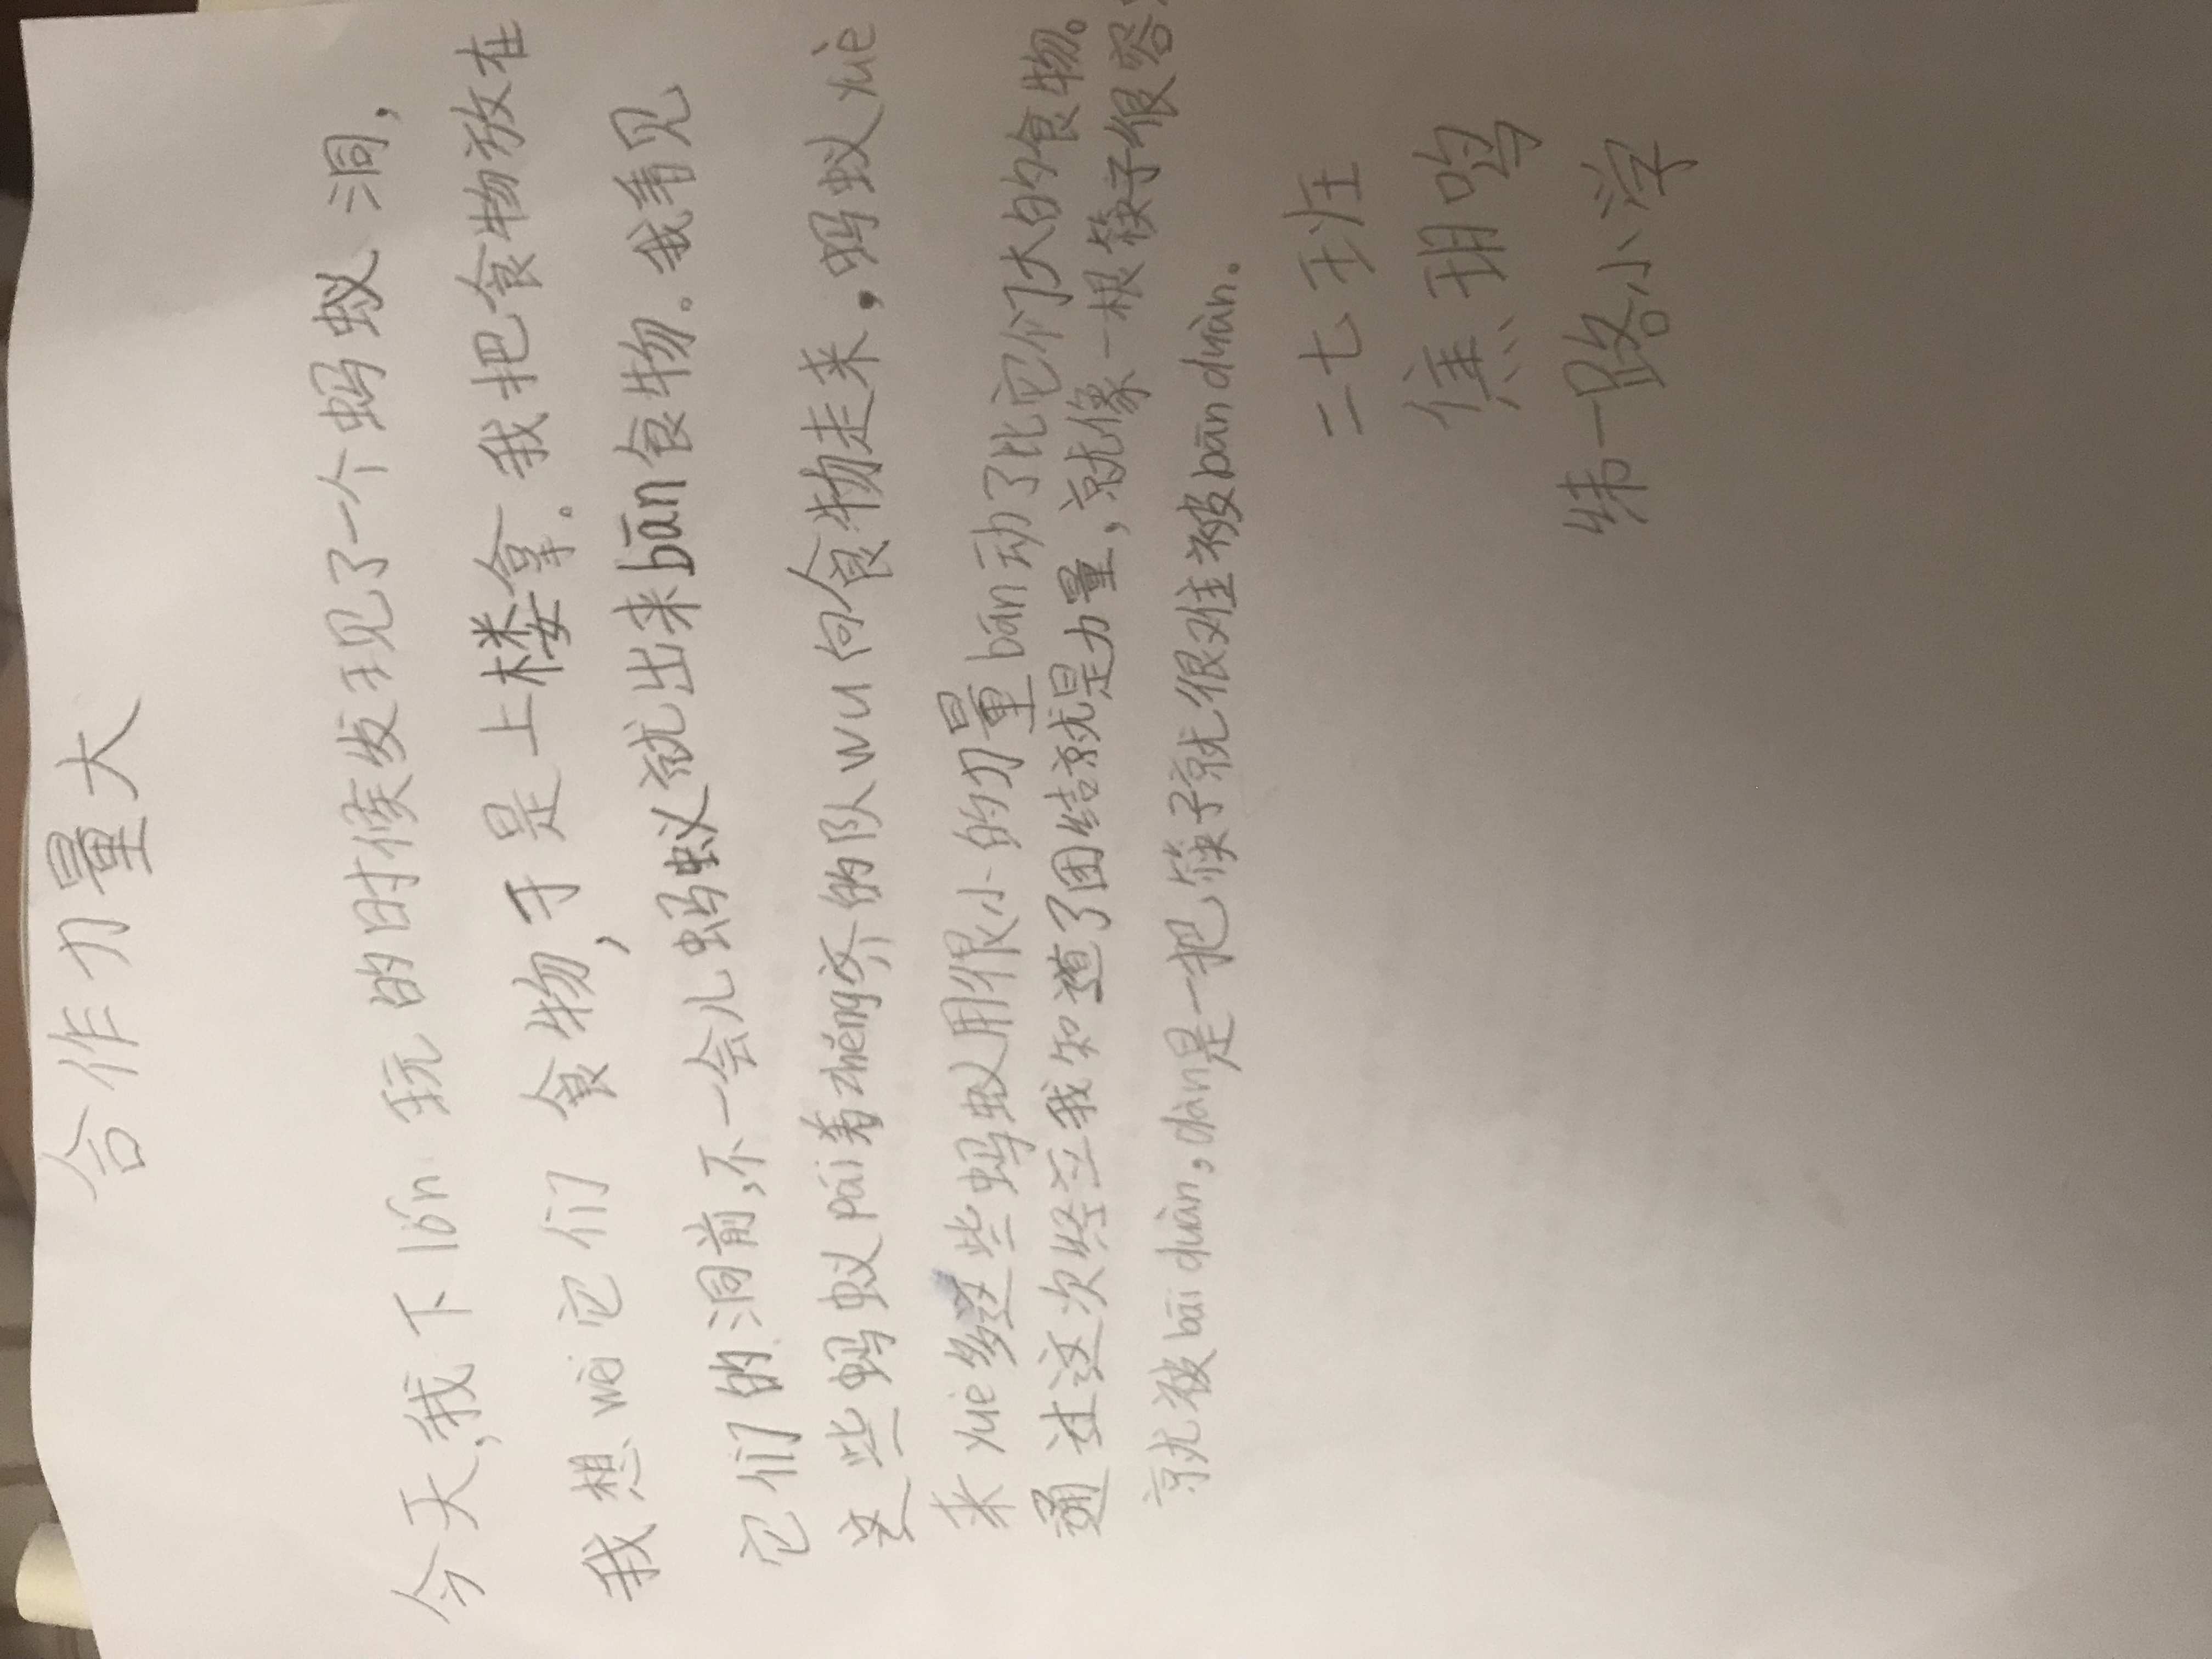 合作力量大
今天,我下lón玩的时候发现了一个蚂蚁洞,
我想wèi它们食物,于是上楼拿。我把食物放在
它们的洞前,不一会儿蚂蚁就出来bān食物。我看见
这些蚂蚁pái着zhéng齐的队wu向食物走来,蚂蚁yuè
来yuè多这些蚂蚁用很小的力量bān动了比它们大的食物。
通过这次经立我知道了团结就是力量,就像一根筷子很容
就被bāi duàn,dàn是一把筷子就很难被bān duàn。
二七班
焦玥鸣
纬一路小学